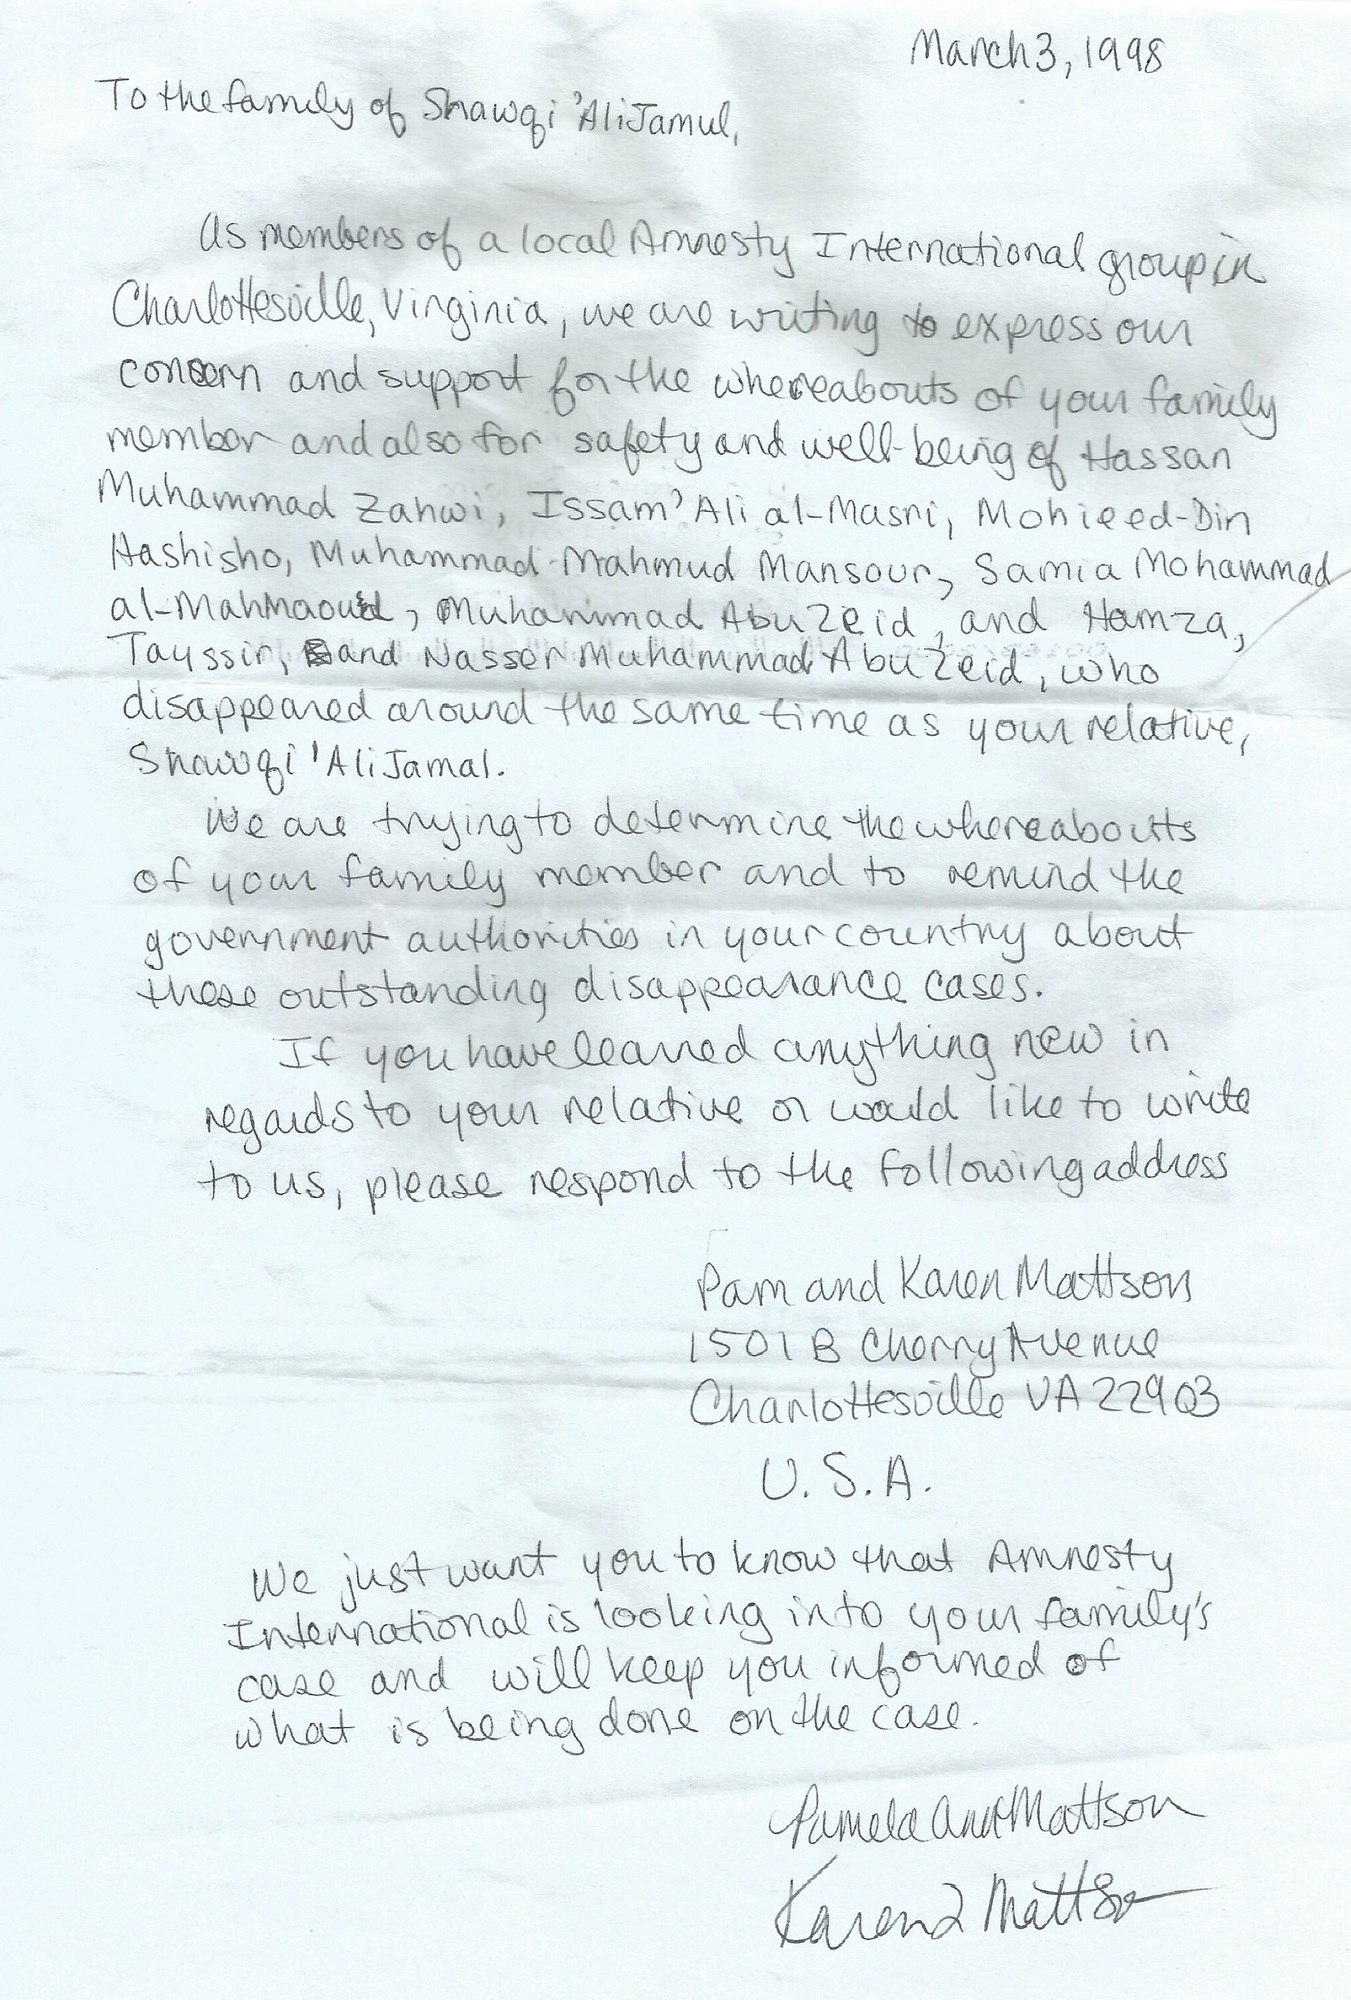 March 3, 1998
To the family of Shawqi 'Ali Jamul,
As members of a local Amnesty International group in
Charlottesville, Virginia, we are writing to express our
concern and support for the whereabouts of your family
member and also for safety and well-being of Hassan
Muhammad Zahwi, Issam 'Ali al-Masri, Mohieed-Din
Hashisho, Muhammad Mahmud Mansour, Samia Mohammad
al-Mahmaoud, Muhammad Abu Zeid, and Hamza,
Tayssir, and Nasser Muhammad Abu Zeid, who
disappeared around the same time as your relative,
Shawqi 'Ali Jamal.
We are trying to determine the whereabouts
of your family member and to remind the
government authorities in your country about
these outstanding disappearance cases.
If you have learned anything new in
regards to your relative or would like to write
to us, please respond to the following address
Pam and Karen Mattson
1501 B Cherry Avenue
Charlottesville VA 22903
U.S.A.
We just want you to know that Amnesty
International is looking into your family's
case and will keep you informed of
what is being done on the case.
Pamela Ann Mattson
Karen L Mattson